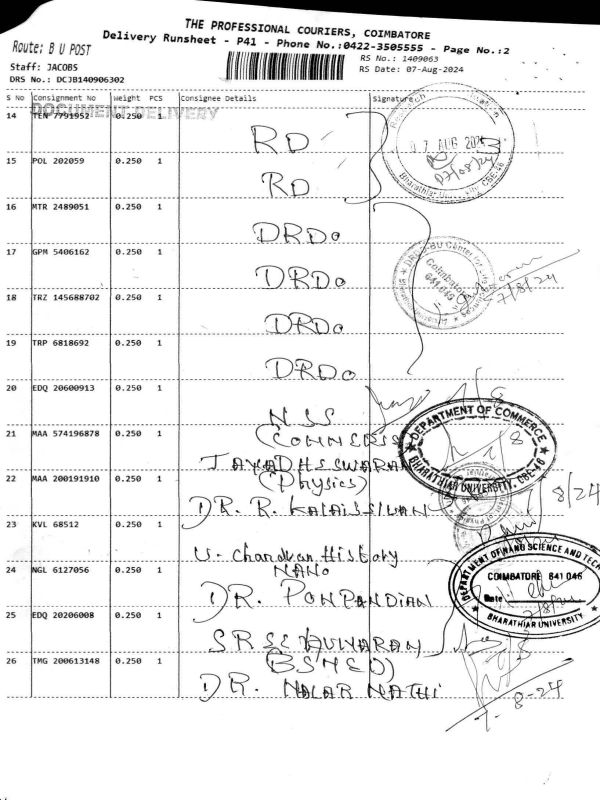 THE PROFESSIONAL COURIERS, COIMBATORE
Delivery Runsheet - P41 - Phone No.:0422-3505555 - Page No.:2
Route: B U POST
RS No.: 1409063
Staff: JACOB5
RS Date: 07-Aug-2024
DRS No.: DCJB140906302
S No Consignment No Weight PCS Consignee Details Signature
DOCUMENT DELIVERY
14 TEN 7791952 0.250 1 RD
15 POL 202059 0.250 1 RD
07 AUG 2024
07/08/24
Bharathiar University, CBE-46
16 MTR 2489051 0.250 1 DRDO
17 GPM 5406162 0.250 1 DRDO
DRDO-BU Center for Life
Coimbatore
641 046
7/8/24
18 TRZ 145688702 0.250 1 DRDO
19 TRP 6818692 0.250 1 DRDO
20 EDQ 20600913 0.250 1 NSS
DEPARTMENT OF COMMERCE
BHARATHIAR UNIVERSITY, CBE-46
21 MAA 574196878 0.250 1
(Physics)
22 MAA 200191910 0.250 1 DR. R.
8/24
23 KVL 68512 0.250 1 History
NANO
24 NGL 6127056 0.250 1 DR. PONPANDIAN
DEPARTMENT OF NANO SCIENCE AND TECH
COIMBATORE 641 046
Date
BHARATHIAR UNIVERSITY
25 EDQ 20206008 0.250 1
26 TMG 200613148 0.250 1 DR.
8-24